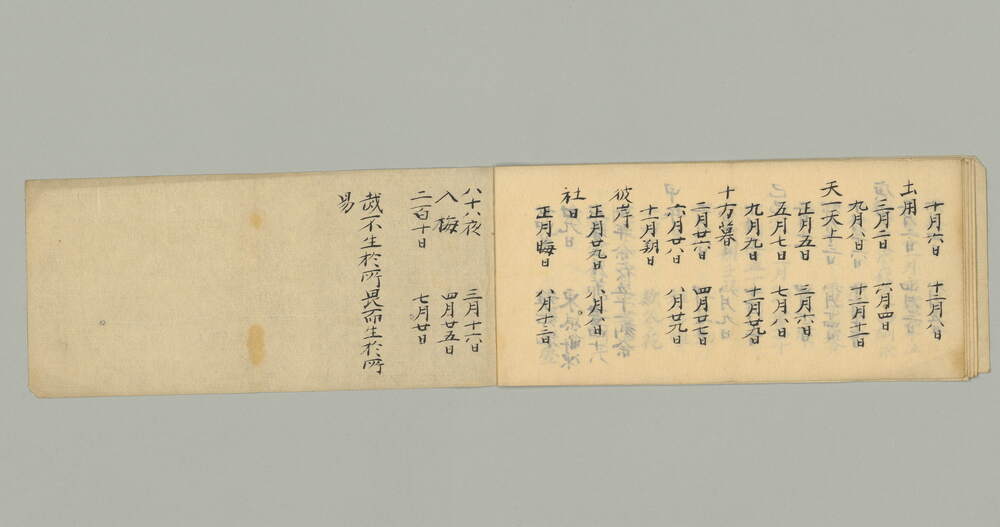 十月六日 十二月八日
土用
三月二日 六月四日
九月八日 十二月十二日
天一天上
正月五日 三月六日
五月七日 七月八日
九月九日 十一月九日
十方暮
二月廿六日 四月廿七日
六月廿八日 八月廿九日
十一月朔日
彼岸
正月廿九日 八月八日
社日
正月晦日 八月十三日
八十八夜 三月十六日
入梅 四月廿五日
二百十日 七月廿日
烖不生於所畏而生於所
易